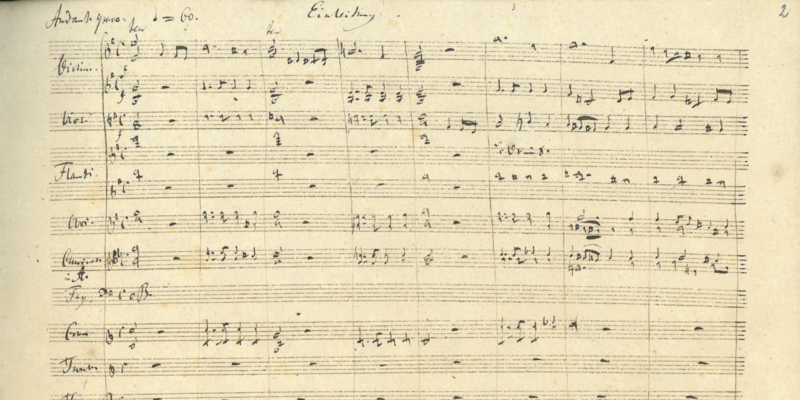 Andante grave. ♩ = 60. Einleitung. 2
ten ten
Violini.
f
f
Viole
f
Flauti
Oboi.
Clarinetti
in A.
Fag. col B.
Corni
Trombe